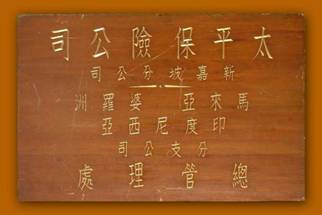 太平保險公司
新嘉坡分公司
馬來亞 婆羅洲
印度尼西亞
分支公司
總管理處